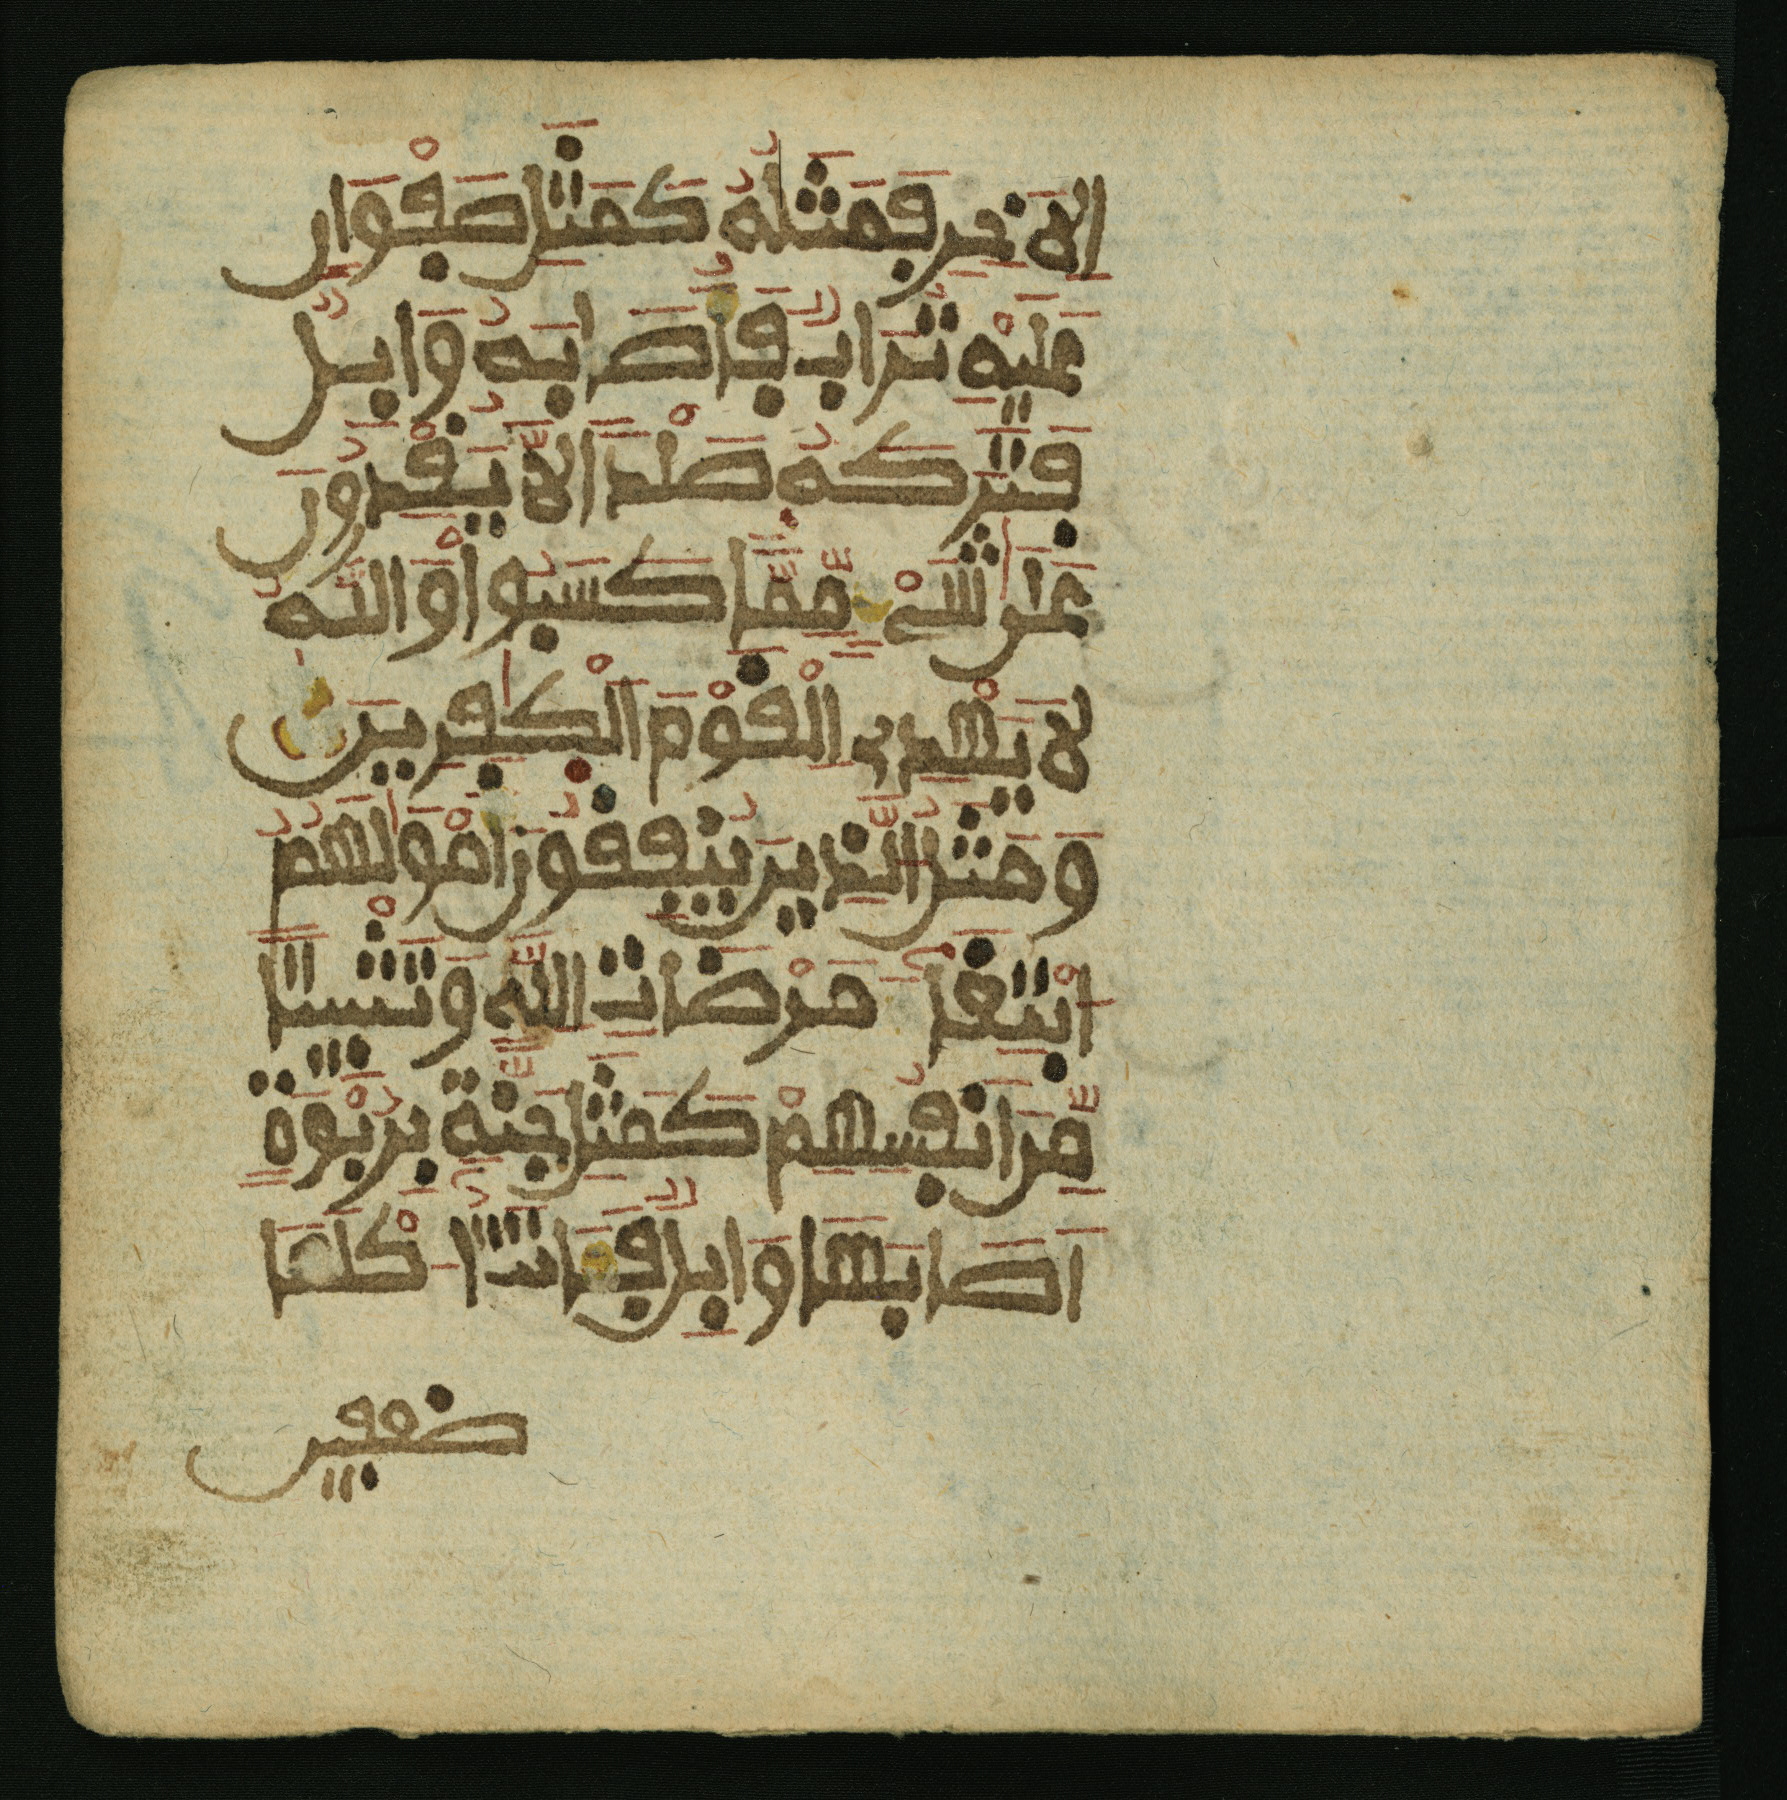 الَاخِرِ فَمَثَلُهُ كَمَثَلِ صَفْوَانٍ
عَلَيْهِ تُرَابٌ فَأَصَابَهُ وَابِلٌ
فَتَرَكَهُ صَلْدًا لَّا يَقْدِرُونَ
عَلَىٰ شَيْءٍ مِّمَّا كَسَبُوا وَاللَّهُ
لَا يَهْدِي الْقَوْمَ الْكَٰفِرِينَ
وَمَثَلُ الَّذِينَ يُنفِقُونَ أَمْوَٰلَهُمُ
ابْتِغَاءَ مَرْضَاتِ اللَّهِ وَتَثْبِيتًا
مِّنَ أَنفُسِهِمْ كَمَثَلِ جَنَّةٍ بِرُبْوَةٍ
أَصَابَهَا وَابِلٌ فَـَٔاتَتْ أُكْلَهَا
ضعفين